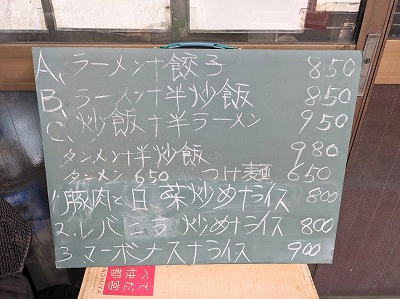 A、ラーメン+餃子 850
B、ラーメン+半炒飯 850
C、炒飯+半ラーメン 950
タンメン+半炒飯 980
タンメン 650 つけ麺 650
1.豚肉と白菜炒め+ライス 800
2.レバニラ炒め+ライス 800
3 マーボナス+ライス 900